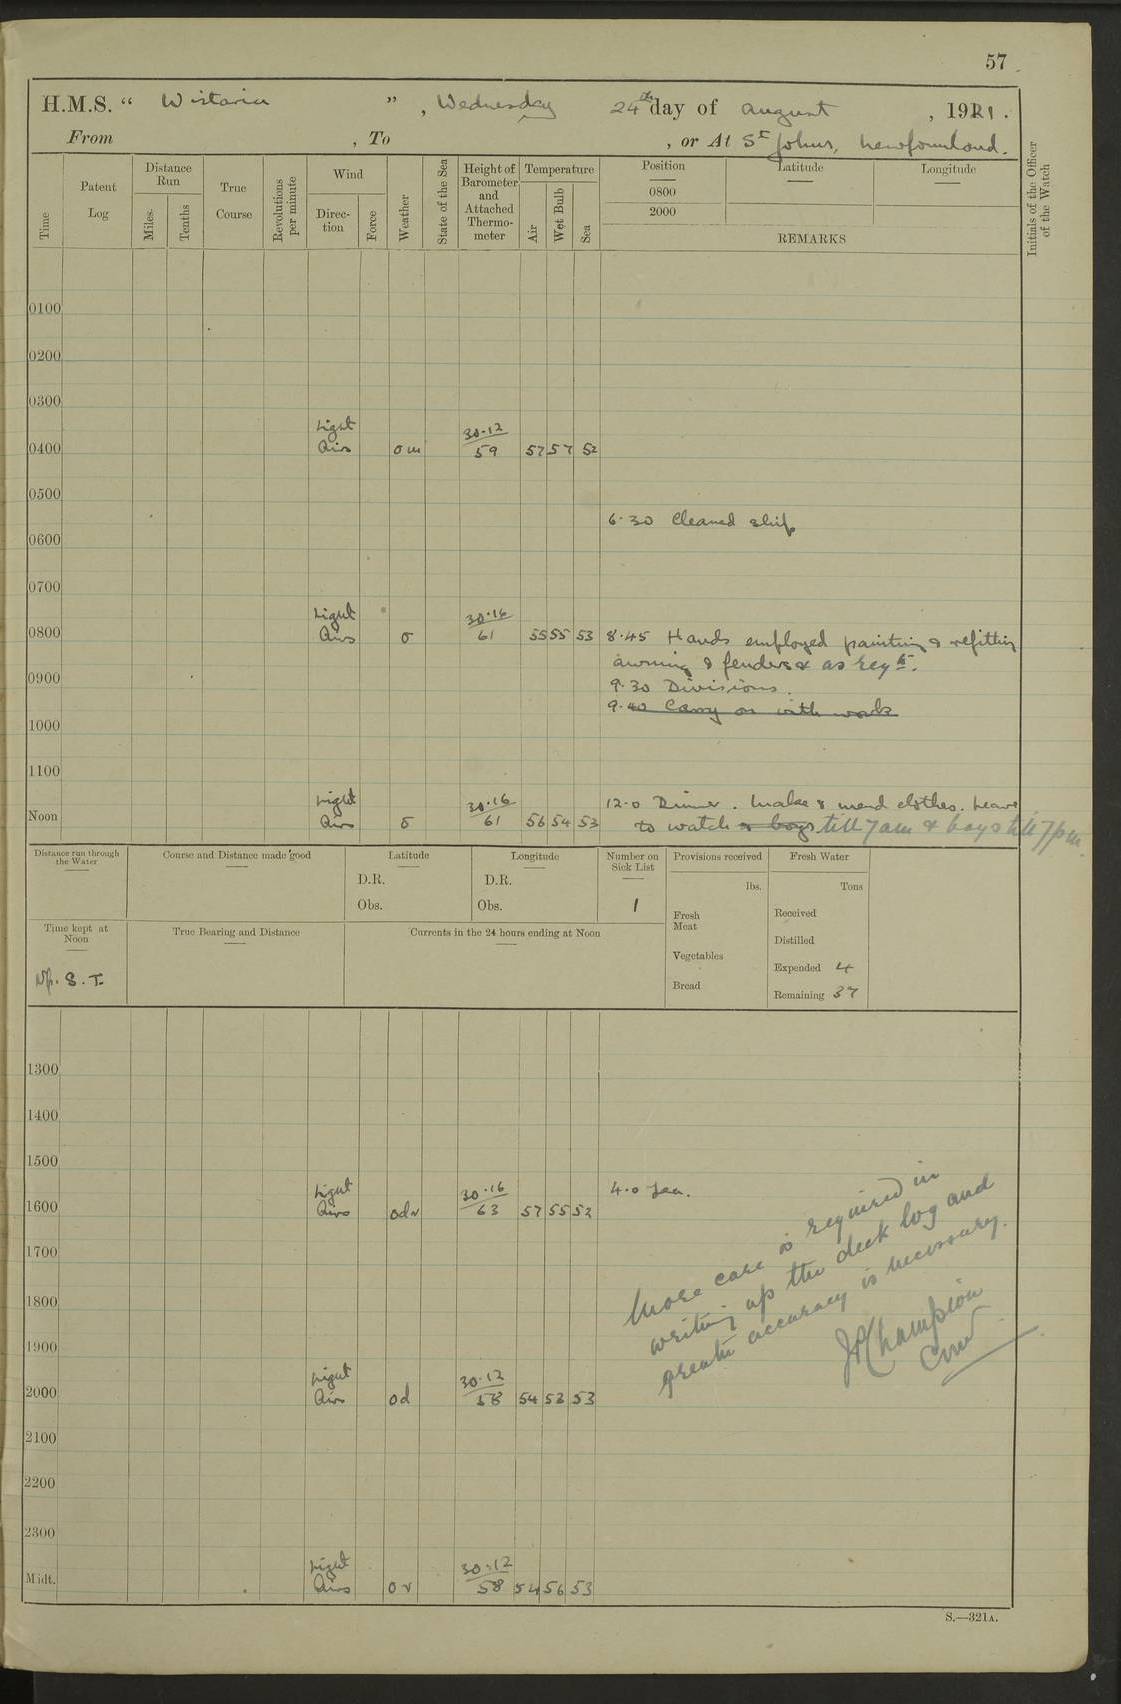 57
H.M.S. “ Wistaria ” , Wednesday 24th day of August , 1921 .
From , To , or At St Johns, Newfoundland.
Time
Patent Log
Distance Run
Miles
Tenths
True Course
Revolutions per minute
Wind
Direc-tion
Force
Weather
State of the Sea
Height of Barometer and Attached Thermo-meter
Temperature
Air
Wet Bulb
Sea
Position
0800
2000
Latitude
Longitude
REMARKS
Initials of the Officer of the Watch
0100
0200
0300
Light 30.12
0400 Airs om 59 57 57 52
0500
6.30 Cleaned ship
0600
0700
Light 30.16
0800 Airs o 61 55 55 53 8.45 Hands employed painting & refitting
awning & fenders & as reqte.
0900
9.30 Divisions.
9.40 Carry on with work
1000
1100
Light 30.16 12.0 Dinner. Make & mend clothes. Leave
Noon Airs o 61 56 54 53 to watch & boys till 7am & boys till 7pm.
Distance run through the Water
Course and Distance made good
Latitude
D.R.
Obs.
Longitude
D.R.
Obs.
Number on Sick List
1
Provisions received
lbs.
Fresh Meat
Vegetables
Bread
Fresh Water
Tons
Received
Distilled
Expended 4
Remaining 37
Time kept at Noon
S.T.
True Bearing and Distance
Currents in the 24 hours ending at Noon
1300
1400
1500
Light 30.16 4.0 Tea.
1600 Airs odv 63 57 55 52
1700
1800
1900
More care is required in
writing up the deck log and
greater accuracy is necessary.
JPChampion
Comr
Light 30.12
2000 Airs od 58 54 53 53
2100
2200
2300
Light 30.12
Midt. Airs ov 58 54 56 53
S.—321A.